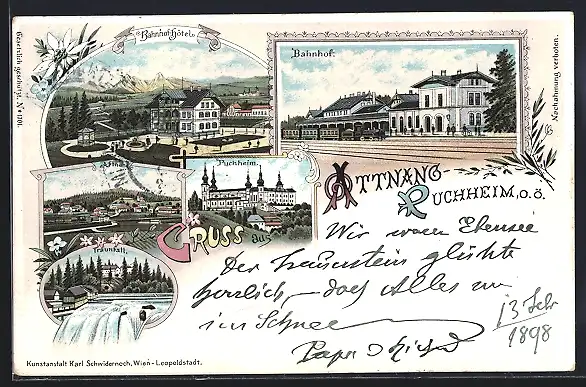 Bahnhof Hôtel
Bahnhof.
Gesetzlich geschützt, No 1201.
Nachahmung verboten.
Puchheim.
Traunfall.
ATTNANG-
PUCHHEIM, O.Ö.
GRUSS aus
Wir waren Ebensee
Der Traunstein glühte
herrlich – doch Alles
im Schnee
13 Febr
1898
Papa
Kunstanstalt Karl Schwidernoch, Wien - Leopoldstadt.